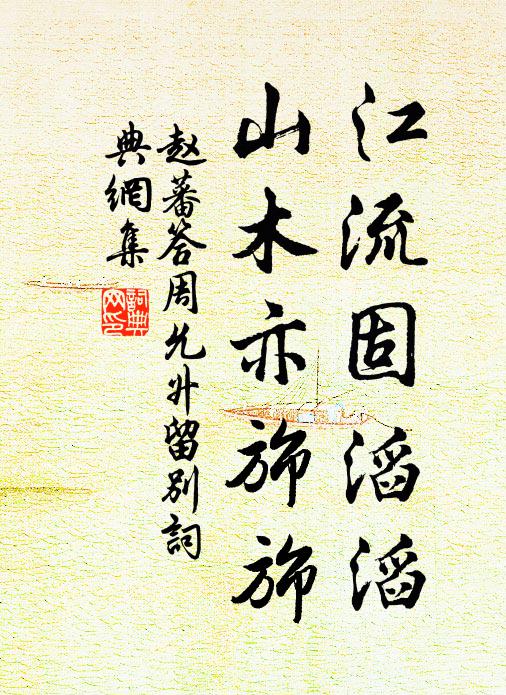 江流固滔滔
山木亦旆旆
赵蕃答周允升留别詞
典網集
詞典
网印